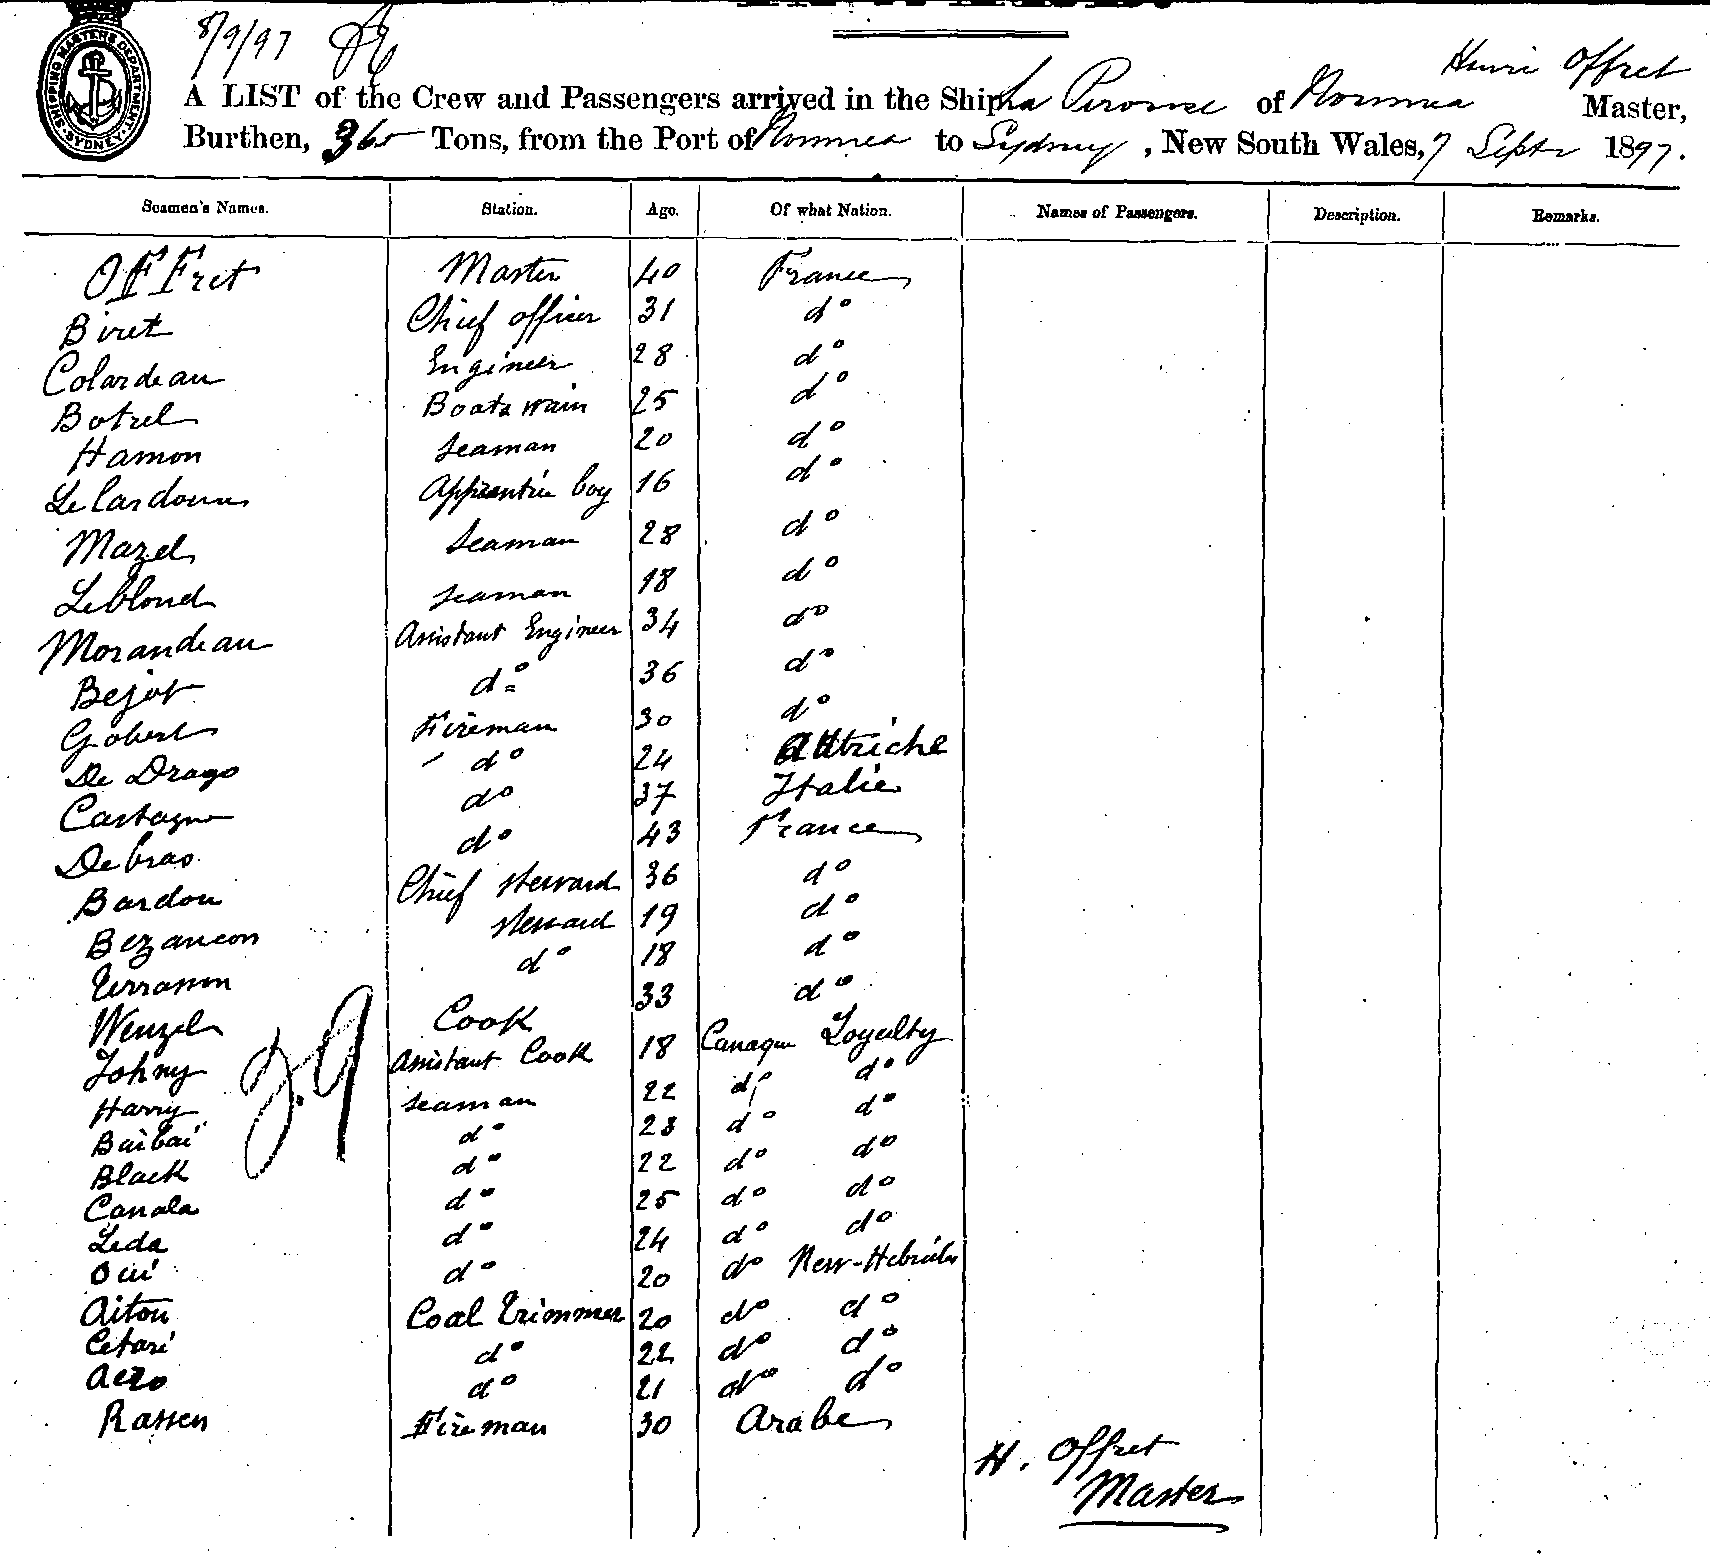 8/9/97
SHIPPING MASTERS DEPARTMENT SYDNEY
Henri Offret
A LIST of the Crew and Passengers arrived in the Ship La Perouse of Noumea Master,
Burthen, 360 Tons, from the Port of Noumea to Sydney, New South Wales, 7 Septr 1897.
Seamen's Names. Station. Age. Of what Nation. Names of Passengers. Description. Remarks.
OFFret Master 40 France
Biret Chief officer 31 do
Colardeau Engineer 28 do
Botrel Boatswain 25 do
Hamon seaman 20 do
Apprentice boy 16 do
Mazel seaman 28 do
Leblond seaman 18 do
Morandeau Assistant Engineer 34 do
Bejot do 36 do
Gobert Fireman 30 do
De Drago do 24 Autriche
Castagno do 37 Italie
Debras do 43 France
Bardou Chief steward 36 do
Bezancon steward 19 do
Terrasson do 18 do
Wenzel Cook 33 do
Johny Assistant Cook 18 Canaque Loyalty
Harry seaman 22 do do
Baibai do 23 do do
Black do 22 do do
Canala do 25 do do
Leda do 24 do do
Oui do 20 do New-Hebrides
Aitou Coal Trimmer 20 do do
Cetari do 22 do do
Aezo do 21 do do
Rassen Fireman 30 Arabe
29
H. Offret
Master